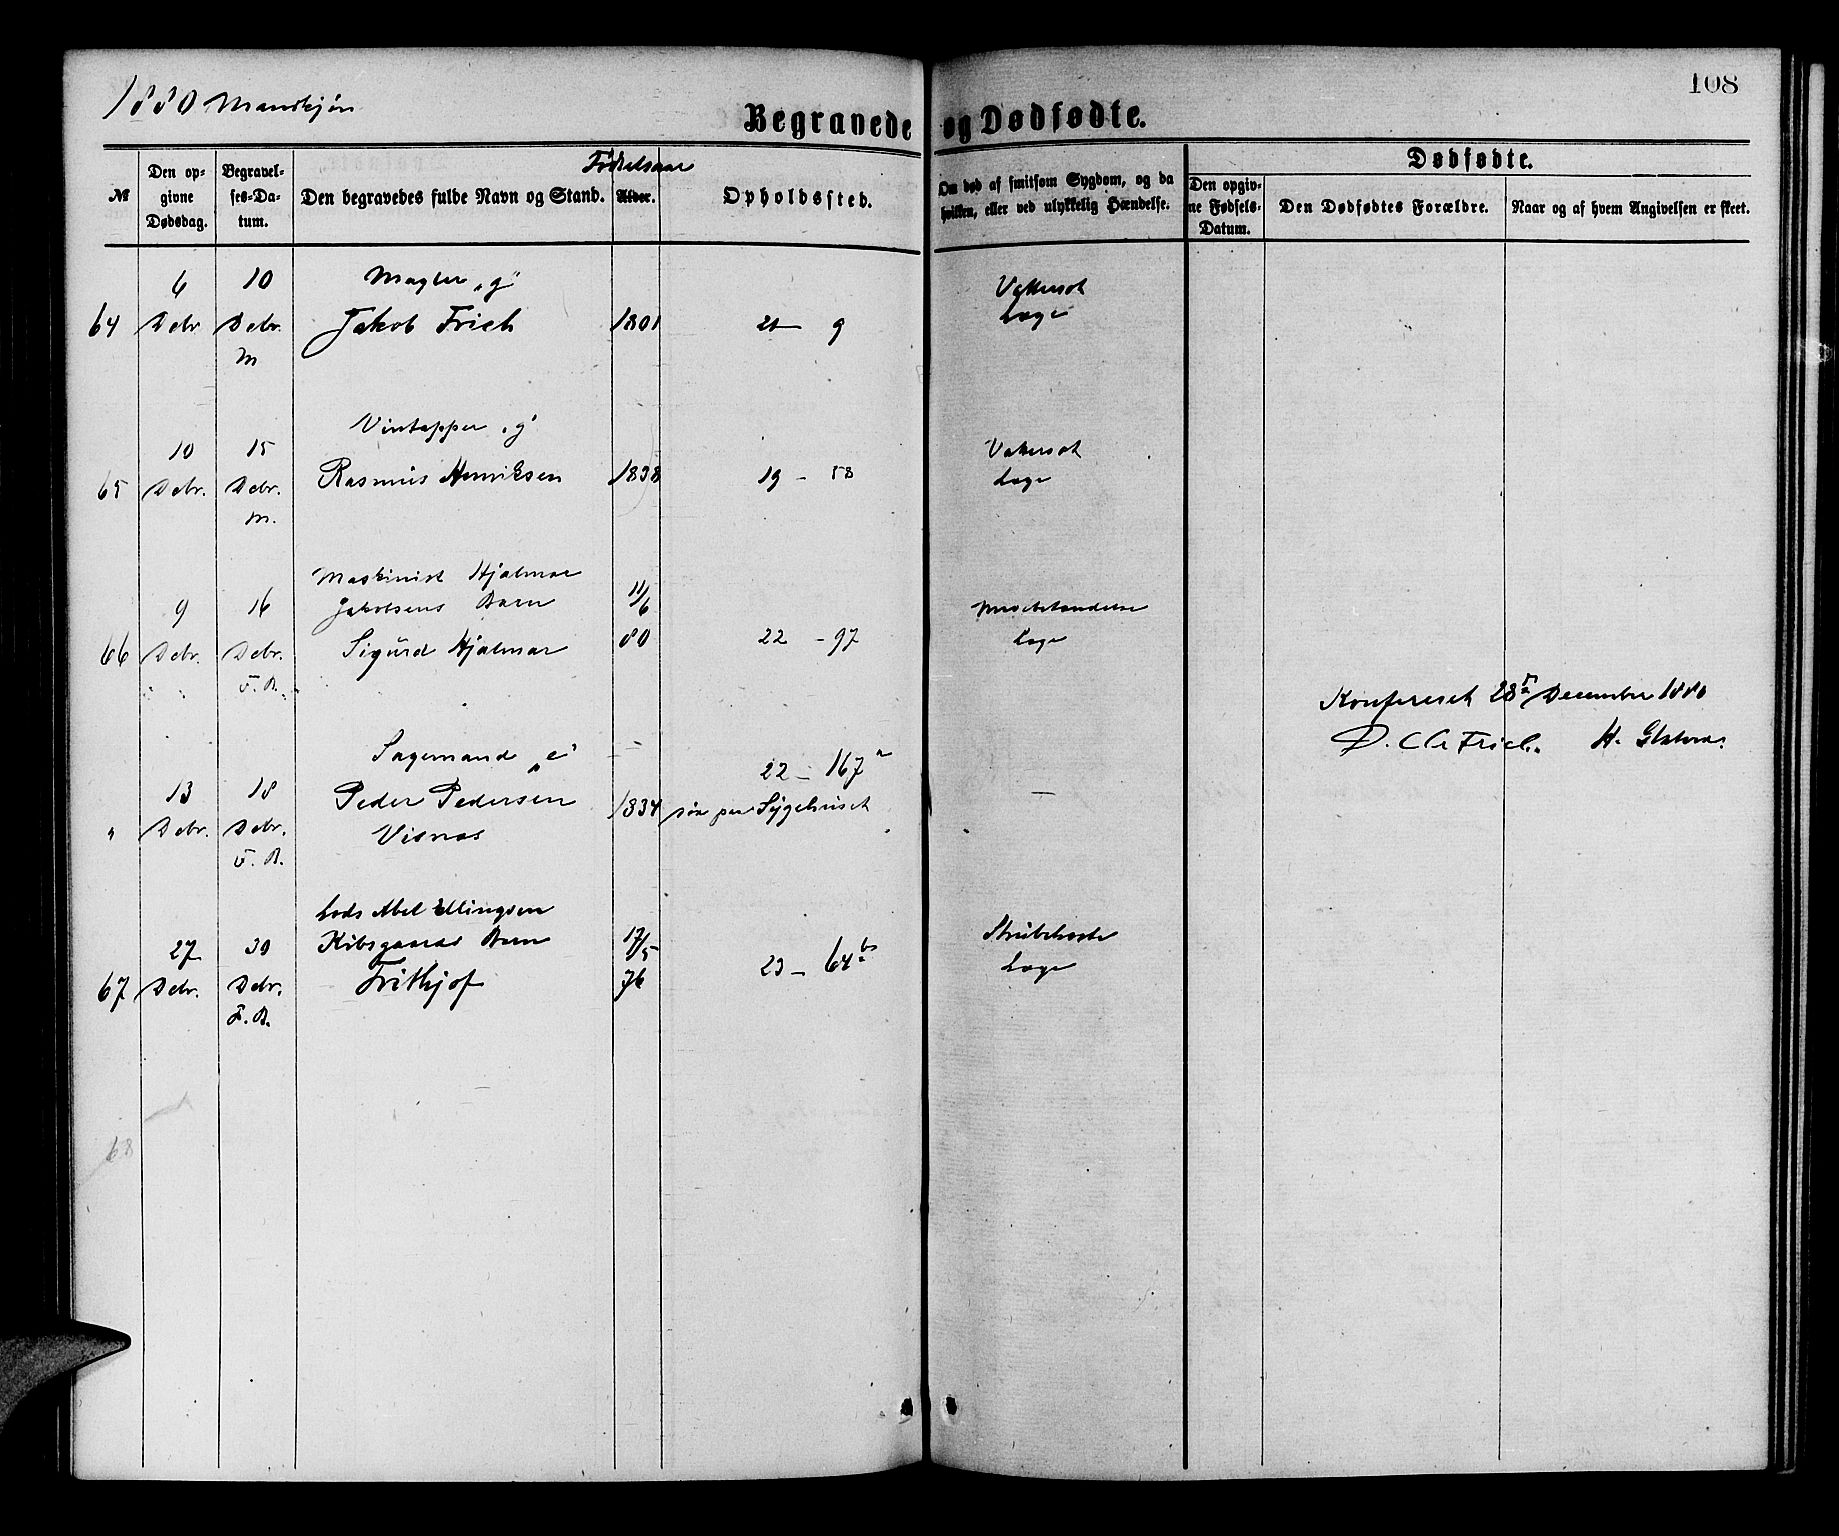 1880 Mandkjøn
108
Begravede og Dødfødte.
№
Den op-
givne
Dødsdag.
Begravel-
ses-Da-
tum.
Den begravedes fulde Navn og Stand.
Fødselsaar
Alder.
Opholdssted.
Om død af smitsom Sygdom, og da
hvilken, eller ved ulykkelig Hændelse.
Dødfødte.
Den opgiv-
ne Fødsels-
Datum.
Den Dødfødtes Forældre.
Naar og af hvem Angivelsen er skeet.
6 10 Mægler „g"
64 Debr. Debr. Jakob Frich 1801 21 — 9
M
Vattersot
Læge
10 15 Vintapper „g"
65 Debr. Debr. Rasmus Henriksen 1838 19 – 58
M.
Vattersot
Læge
Maskinist Hjalmar
9 16 Jakobsens Barn 11/6
66 Debr. Debr. Sigurd Hjalmar 80 22 – 97
F. B.
Læge
Konfereret 28 December 1880
D. C. Frich.
Sagemand „e"
22 – 167 a
13 18 Peder Pedersen 1834
" Debr. Debr. Visnæs paa Sygehuset
F. B.
—
Lods Abel Ellingsen
27 30 Kibsgaards Barn 17/5
67 Debr. Debr. Frithjof 76 23 – 64
F. B.
Strubehoste
Læge
68